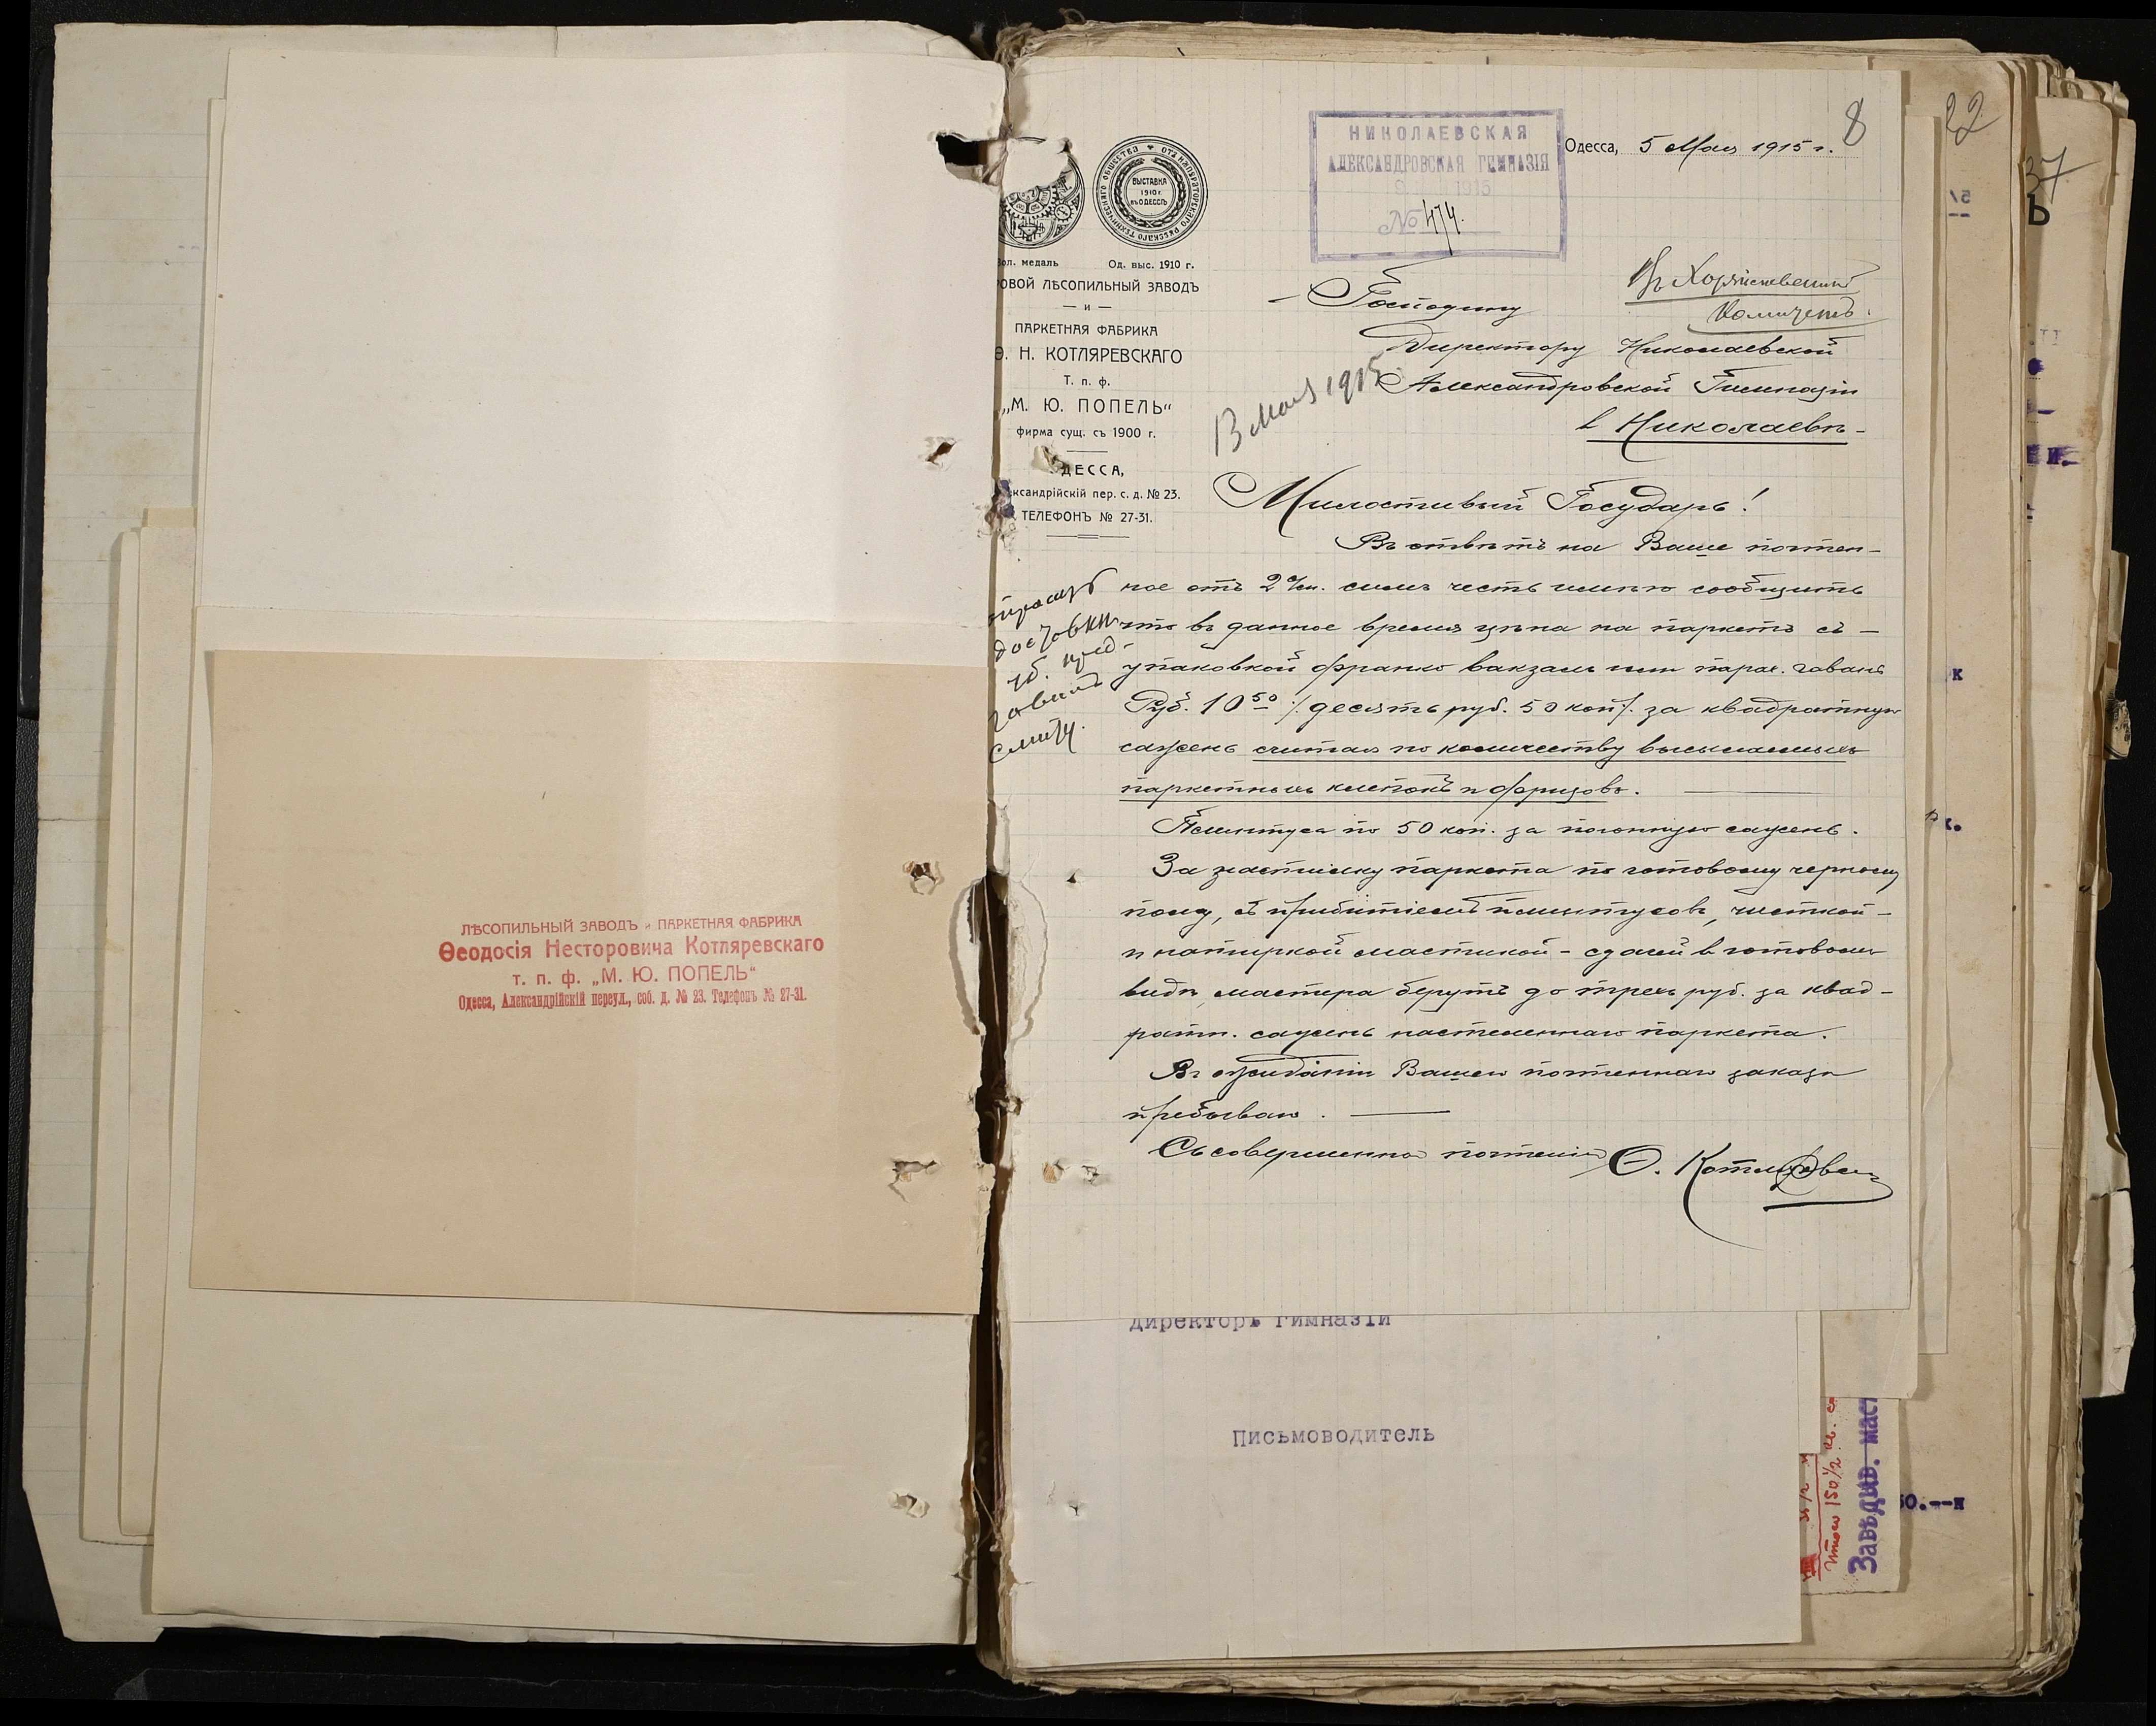 ЛѢСОПИЛЬНЫЙ ЗАВОДЪ и ПАРКЕТНАЯ ФАБРИКА
Ѳеодосія Несторовича Котляревскаго
т. п. ф. „М. Ю. ПОПЕЛЬ“
Одесса, Александрійскій переул., соб. д. № 23. Телефонъ № 27-31.
8
22
37
НИКОЛАЕВСКАЯ
АЛЕКСАНДРОВСКАЯ ГИМНАЗІЯ
1915
№ 474.
Одесса, 5 Мая 1915 г.
ОТЪ ИМПЕРАТОРСКАГО РУССКАГО ТЕХНИЧЕСКАГО ОБЩЕСТВА
ВЫСТАВКА
1910 г.
ВЪ ОДЕССѢ
Зол. медаль Од. выс. 1910 г.
ОВОЙ ЛѢСОПИЛЬНЫЙ ЗАВОДЪ
— и —
ПАРКЕТНАЯ ФАБРИКА
Ѳ. Н. КОТЛЯРЕВСКАГО
Т. п. ф.
„М. Ю. ПОПЕЛЬ“
фирма сущ. съ 1900 г.
ДЕССА,
ксандрійскій пер. с. д. № 23.
ТЕЛЕФОНЪ № 27-31.
Въ Хозяйственный
Комитетъ.
Господину
Директору Николаевской
Александровской Гимназіи
в Николаевѣ
13 Мая 1915
Милостивый Государь!
Въ отвѣтъ на Ваше почтен-
ное отъ 2 с/м. симъ честь имѣю сообщить
что въ данное время цѣна на паркетъ съ
упаковкой франко вакзалъ или парах. гавань
Руб. 10 50 /. десять руб. 50 коп /. за квадратную
сажень считая по количеству высылаемыхъ
паркетныхъ клепокъ и фризовъ.
Плинтуса по 50 коп. за погонную сажень.
За настилку паркета по готовому черному
полу, съ прибитіемъ плинтусовъ, чисткой
и натиркой мастикой - сдачей в готовомъ
видѣ, мастера берутъ до трехъ руб. за квад-
ратн. сажень настеленнаго паркета.
Въ ожиданіи Вашего почтеннаго заказа
пребываю.
Съ совершеннымъ почтеніемъ Ѳ. Котляревскій
доставки
смѣту.
директоръ гимназіи
Письмоводитель
Итого 150½
Завѣдыв. маст
50.--к